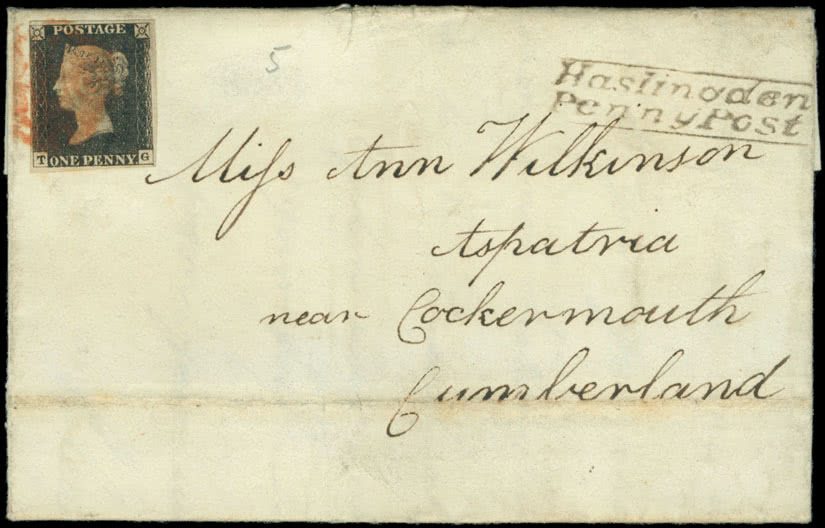 POSTAGE
T ONE PENNY G
5
Haslingden
Penny Post
Miſs Ann Wilkinson
Aspatria
near Cockermouth
Cumberland